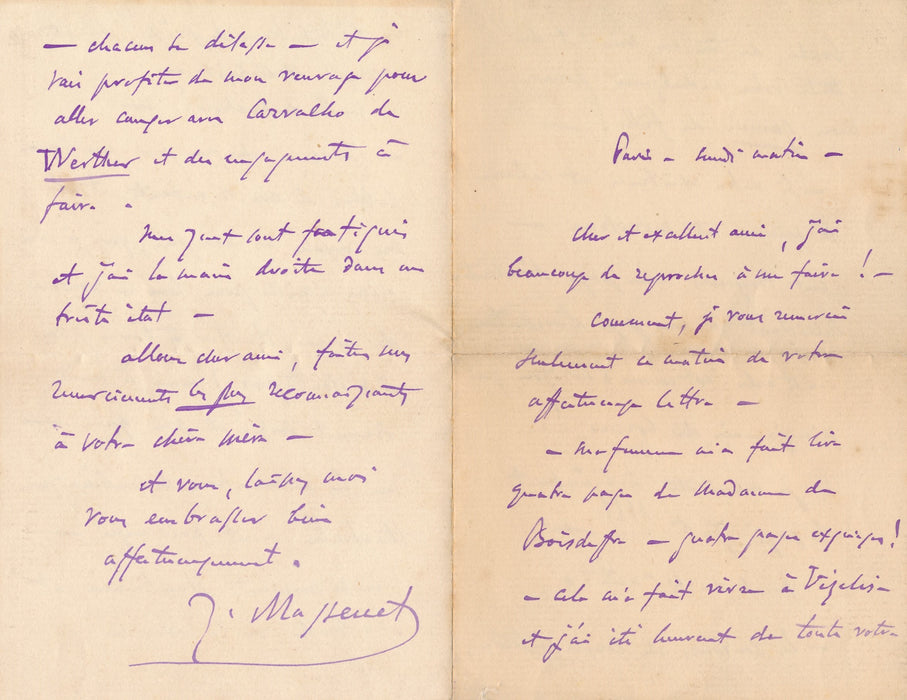 Paris - lundi matin -
cher et excellent ami, j'ai
beaucoup de reproches à me faire ! -
Comment, je vous remercie
seulement ce matin de votre
affectueuse lettre -
- ma femme m'a fait lire
quatre pages de Madame de
Boisdeffre - quatre pages exquises !
- cela m'a fait vivre à Vizelise
et j'ai été heureux de toute votre
- chacun se délasse - et je
vais profiter de mon veuvage pour
aller causer avec Carvalho de
Werther et des engagements à
faire.
mes yeux sont fatigués
et j'ai la main droite dans un
triste état -
allons cher ami, faites mes
remerciements les plus reconnaissants
à votre chère mère -
et vous, laissez moi
vous embrasser bien
affectueusement.
J. Massenet